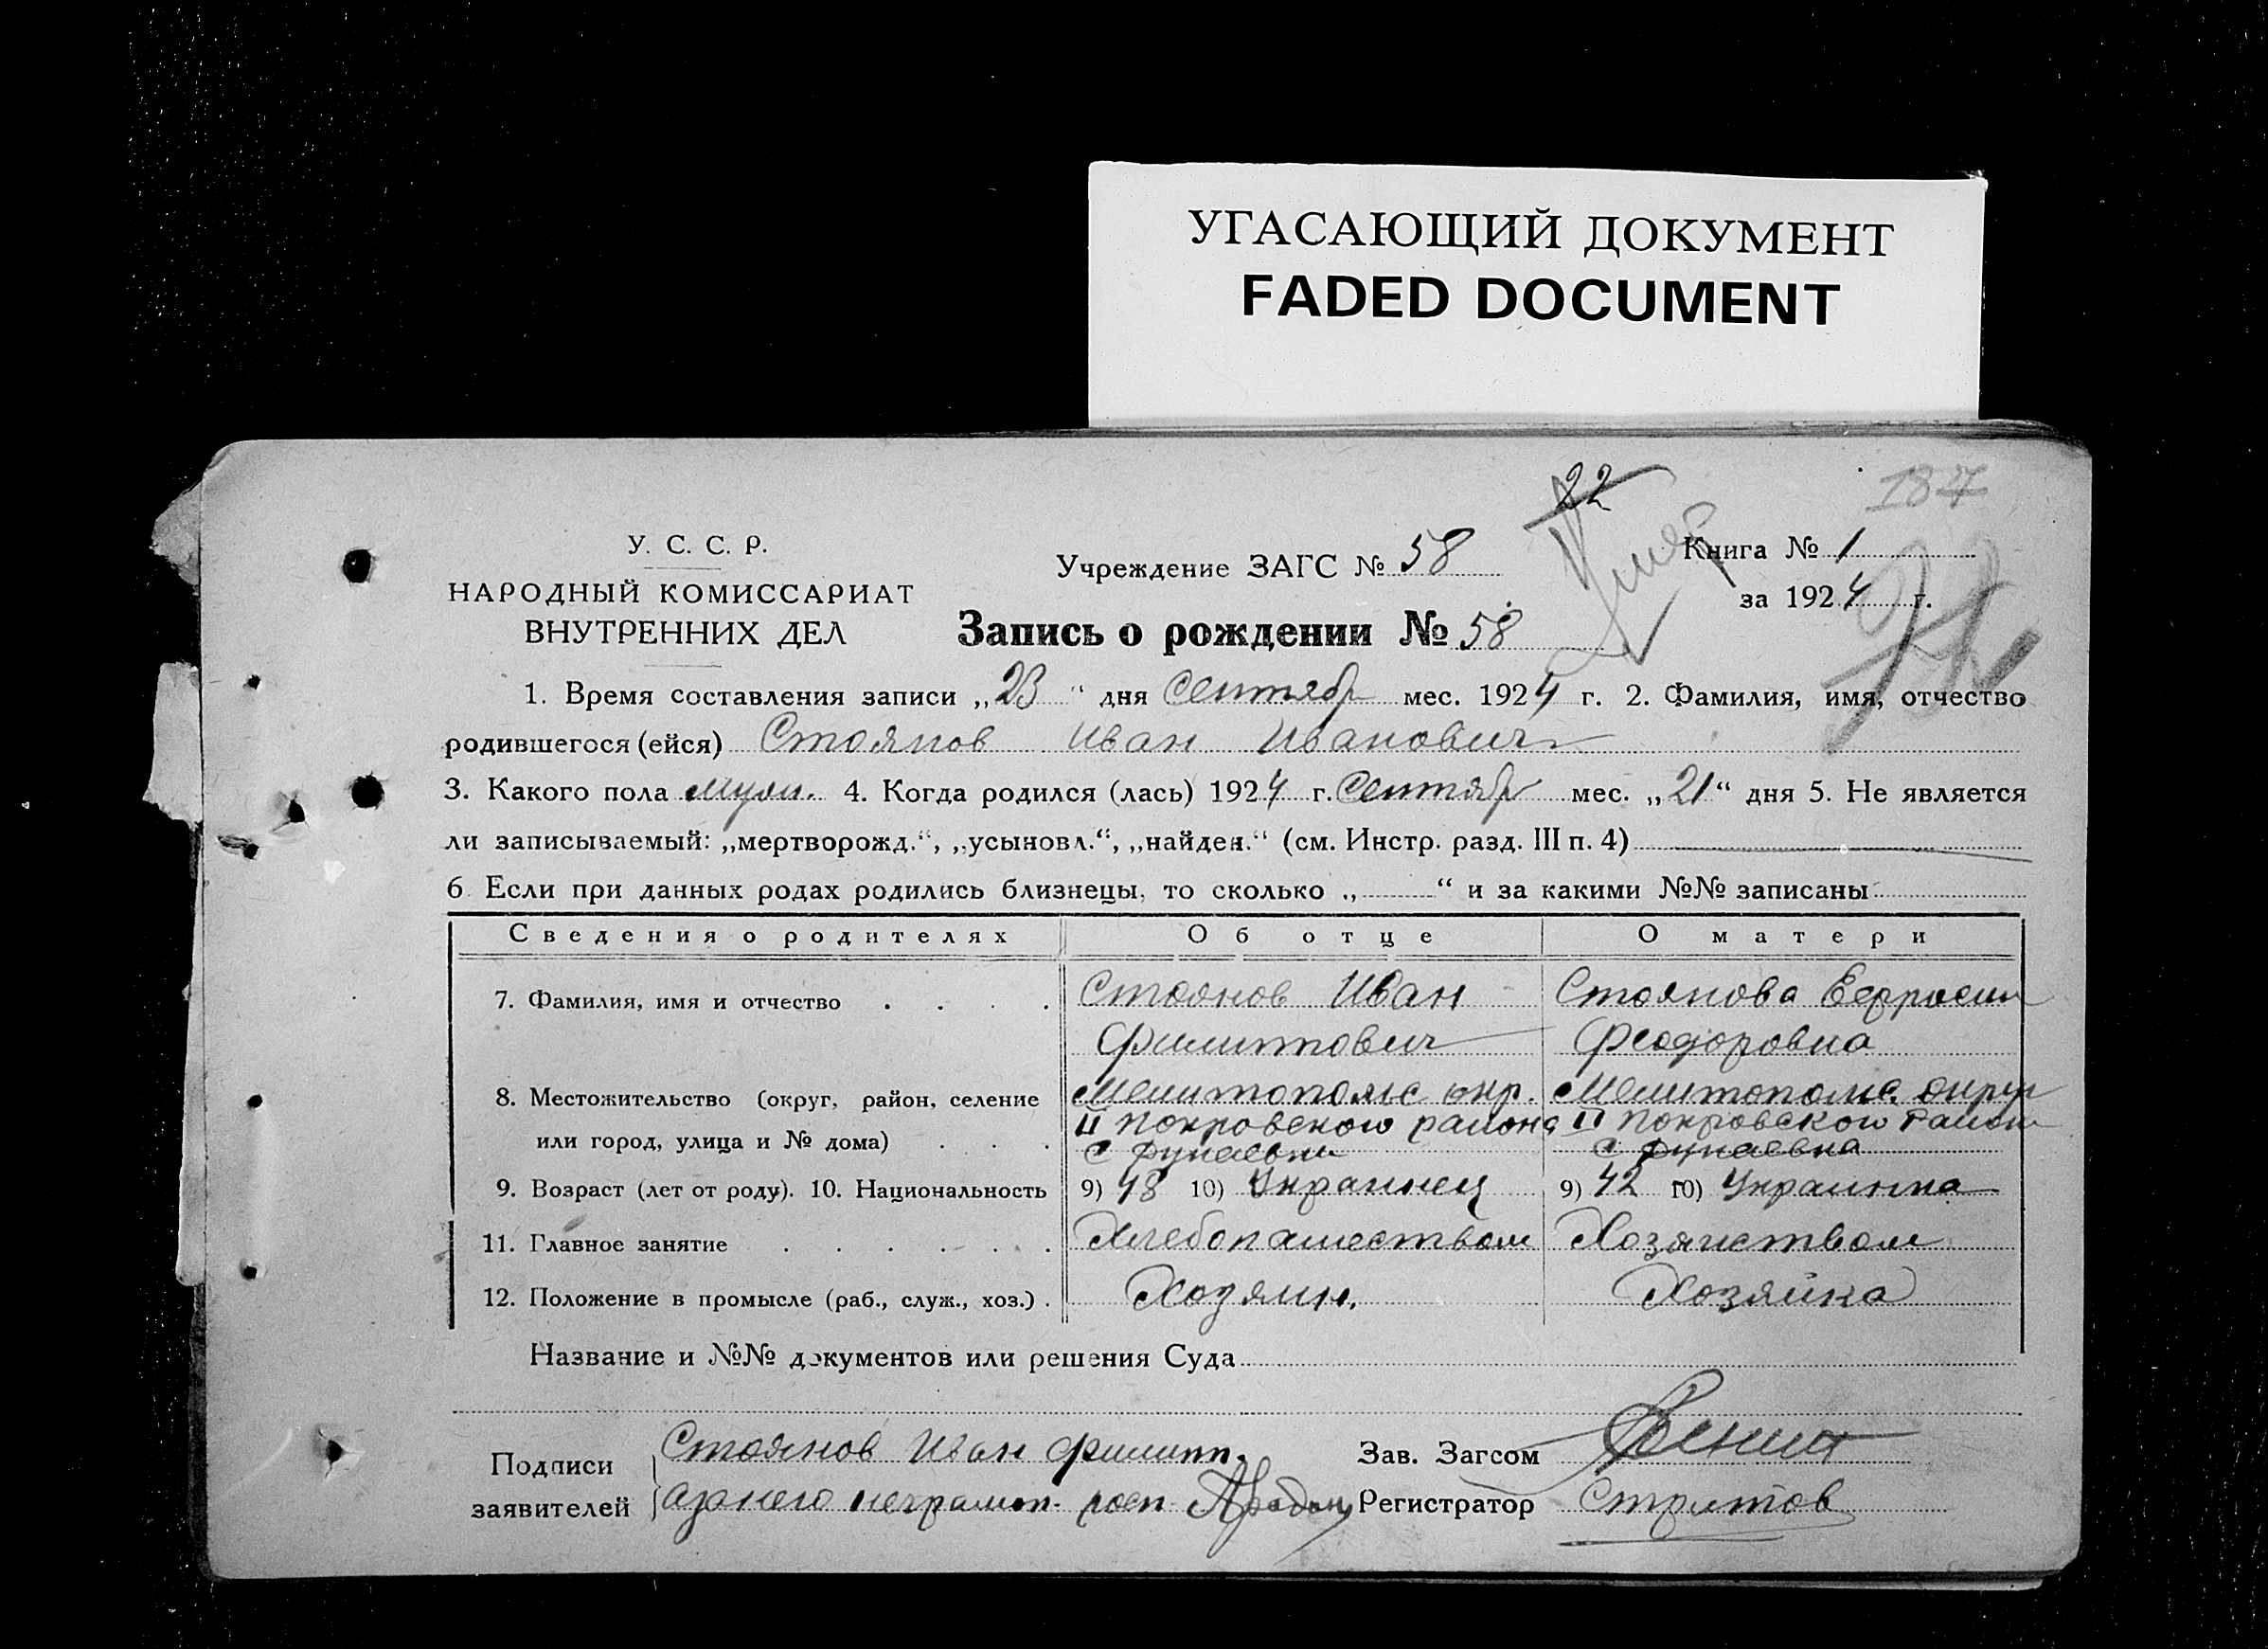 УГАСАЮЩИЙ ДОКУМЕНТ
FADED DOCUMENT
22
187
У. С. С. Р.
НАРОДНЫЙ КОМИССАРИАТ
ВНУТРЕННИХ ДЕЛ
Учреждение ЗАГС № 58
умер
Книга № 1
за 1924 г.
Запись о рождении № 58
1. Время составления записи „23“ дня Сентябр мес. 1924 г. 2. Фамилия, имя, отчество
родившегося (ейся) Стоянов Иван Иванович
3. Какого пола муж. 4. Когда родился (лась) 1924 г. Сентябр мес. „21“ дня 5. Не является
ли записываемый: „мертворожд.“, „усыновл.“, „найден.“ (см. Инстр. разд. III п. 4)
6 Если при данных родах родились близнецы, то сколько „ “ и за какими №№ записаны
Сведения о родителях Об отце О матери
7. Фамилия, имя и отчество . . . . Стоянов Иван Стоянова Ефросин
Филиппович Феодоровна
8. Местожительство (округ, район, селение Мелитопольс окр. Мелитопольс. округ
II Покровского района II Покровского район
или город, улица и № дома) . . .
9. Возраст (лет от роду). 10. Национальность 9) 48 10) Украинец 9) 42 10) Украинка
11. Главное занятие . . . . . . Хлебопашеством Хозяйством
12. Положение в промысле (раб., служ., хоз.) . Хозяин. Хозяйка
Название и №№ документов или решения Суда
Подписи
заявителей
Стоянов Иван Филипп.
неграмот. росп
Зав. Загсом
Регистратор